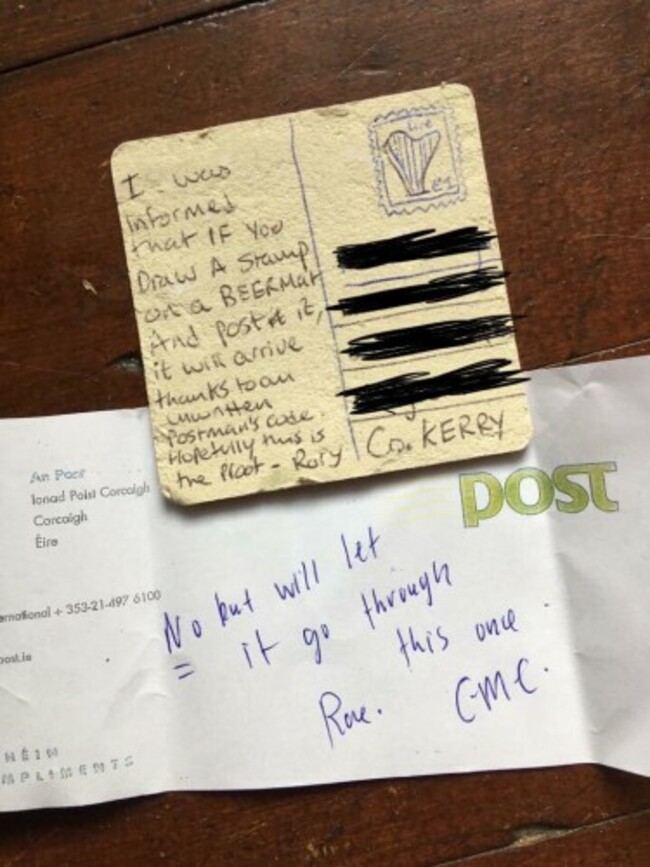 I was
informed
that IF You
Draw A Stamp
on a BEERMat
And post it,
it will arrive
thanks to an
unwritten
Postman's code.
Hopefully this is
the Proof - Rory
Éire
€1
Co. KERRY
An Post
Ionad Poist Corcaigh
Corcaigh
Éire
ernational + 353-21-497 6100
post.ie
HÉIN
MPLIMENTS
post
No but will let
it go through
this once
CMC.